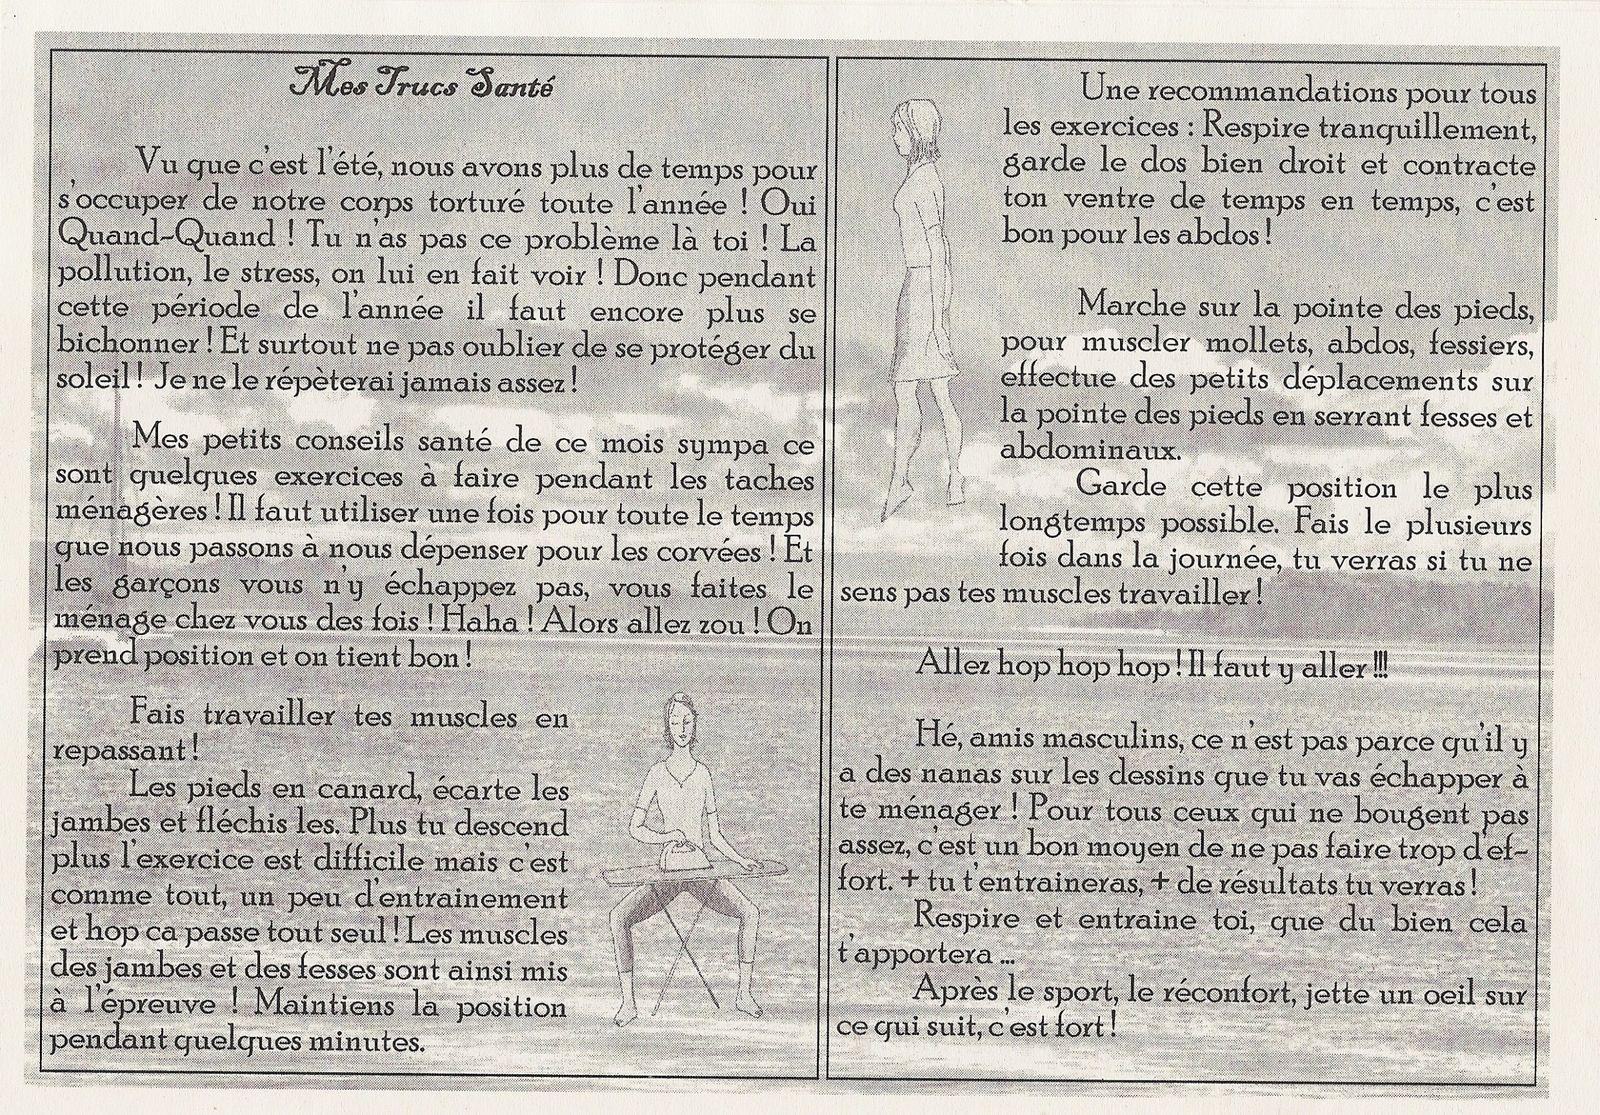 Mes Trucs Santé
Vu que c'est l'été, nous avons plus de temps pour
s'occuper de notre corps torturé toute l'année ! Oui
Quand-Quand ! Tu n'as pas ce problème là toi ! La
pollution, le stress, on lui en fait voir ! Donc pendant
cette période de l'année il faut encore plus se
bichonner ! Et surtout ne pas oublier de se protéger du
soleil ! Je ne le répèterai jamais assez !
Mes petits conseils santé de ce mois sympa ce
sont quelques exercices à faire pendant les taches
ménagères ! Il faut utiliser une fois pour toute le temps
que nous passons à nous dépenser pour les corvées ! Et
les garçons vous n'y échappez pas, vous faites le
ménage chez vous des fois ! Haha ! Alors allez zou ! On
prend position et on tient bon !
Fais travailler tes muscles en
repassant !
Les pieds en canard, écarte les
jambes et fléchis les. Plus tu descend
plus l'exercice est difficile mais c'est
comme tout, un peu d'entrainement
et hop ca passe tout seul ! Les muscles
des jambes et des fesses sont ainsi mis
à l'épreuve ! Maintiens la position
pendant quelques minutes.
Une recommandations pour tous
les exercices : Respire tranquillement,
garde le dos bien droit et contracte
ton ventre de temps en temps, c'est
bon pour les abdos !
Marche sur la pointe des pieds,
pour muscler mollets, abdos, fessiers,
effectue des petits déplacements sur
la pointe des pieds en serrant fesses et
abdominaux.
Garde cette position le plus
longtemps possible. Fais le plusieurs
fois dans la journée, tu verras si tu ne
sens pas tes muscles travailler !
Allez hop hop hop ! Il faut y aller !!!
Hé, amis masculins, ce n'est pas parce qu'il y
a des nanas sur les dessins que tu vas échapper à
te ménager ! Pour tous ceux qui ne bougent pas
assez, c'est un bon moyen de ne pas faire trop d'ef-
fort. + tu t'entraineras, + de résultats tu verras !
Respire et entraine toi, que du bien cela
t'apportera ...
Après le sport, le réconfort, jette un oeil sur
ce qui suit, c'est fort !